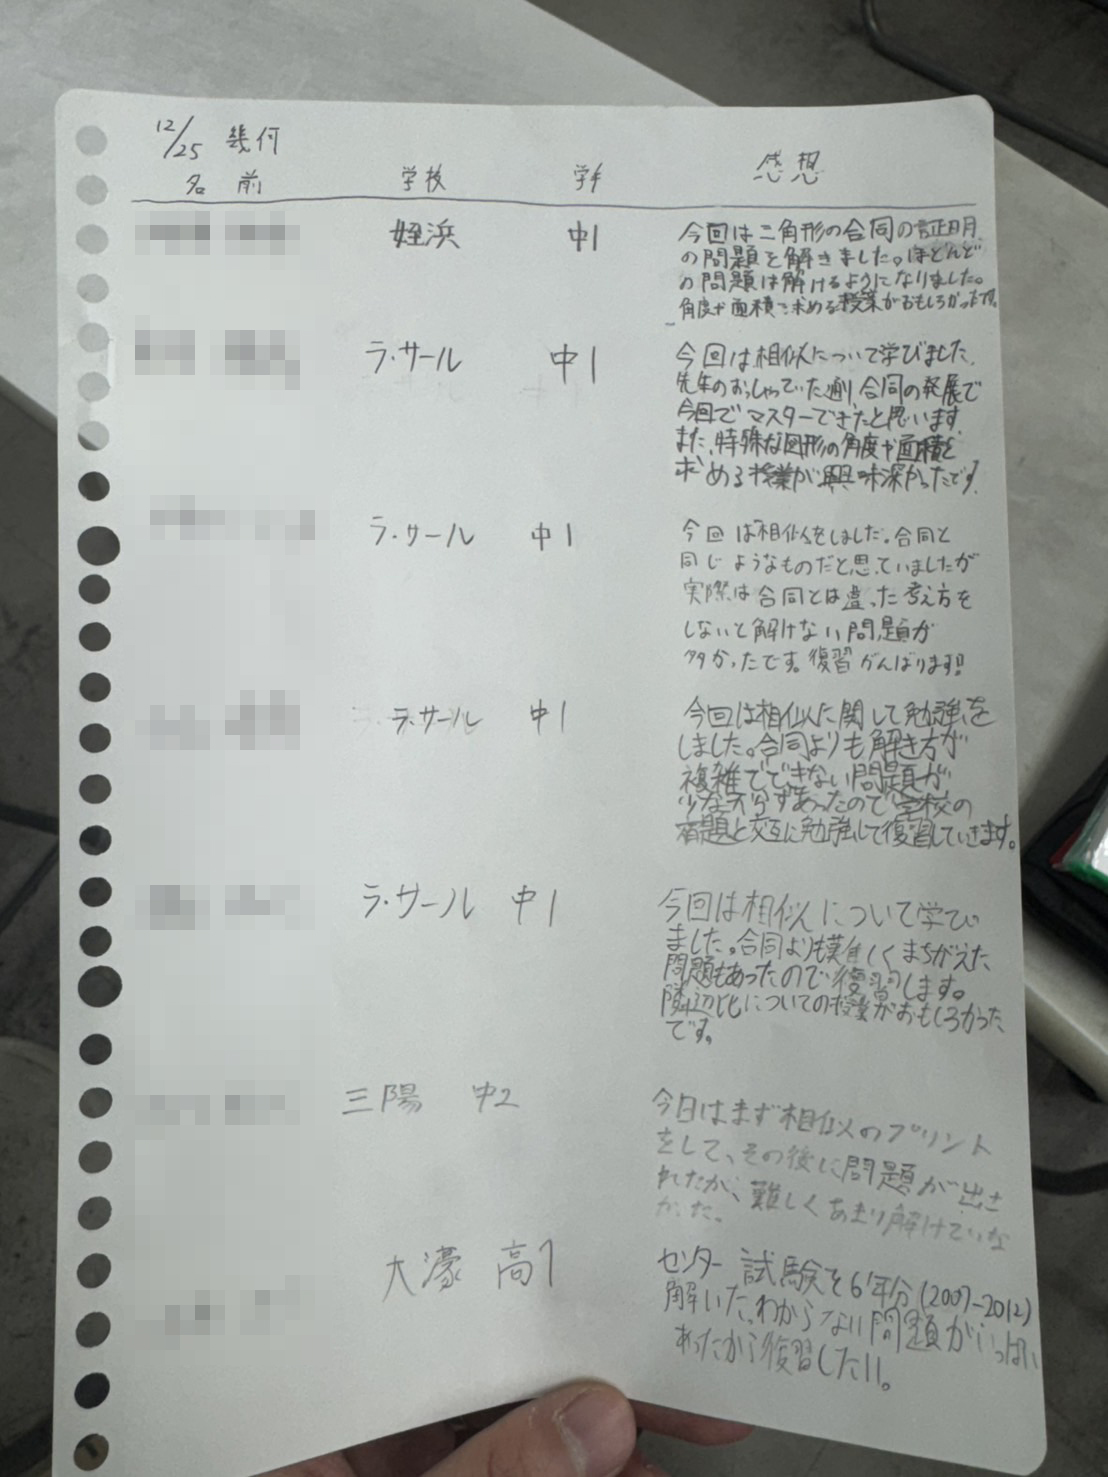 12/25 幾何
名前 学校 学年 感想
姪浜 中1
今回は三角形の合同の証明
の問題を解きました。ほとんど
の問題は解けるようになりました。
角度や面積を求める授業がおもしろかったです。
ラ・サール 中1
今回は相似について学びました。
先生のおっしゃっていた通り、合同の発展で
今回でマスターできたと思います。
また、特殊な図形の角度や面積を
求める授業が興味深かったです。
ラ・サール 中1
今回は相似をしました。合同と
同じようなものだと思っていましたが
実際は合同とは違った考え方を
しないと解けない問題が
多かったです。復習がんばります!
ラ・サール 中1
今回は相似に関して勉強を
しました。合同よりも解き方が
複雑でできない問題が
少なからずあったので学校の
宿題と交互に勉強して復習していきます。
ラ・サール 中1
今回は相似について学び
ました。合同よりも難しくまちがえた
問題もあったので復習します。
隣辺比についての授業がおもしろかった
です。
三陽 中2
今日はまず相似のプリント
をして、その後に問題が出さ
れたが、難しくあまり解けていな
かった。
大濠 高1
センター試験を6年分(2007-2012)
解いた。わからない問題がいっぱい
あったから復習したい。